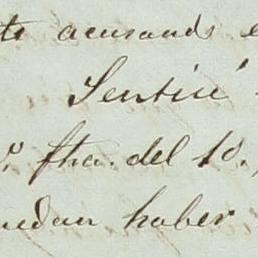 acusando e
Sentiré
fha. del 10.
uedan haber